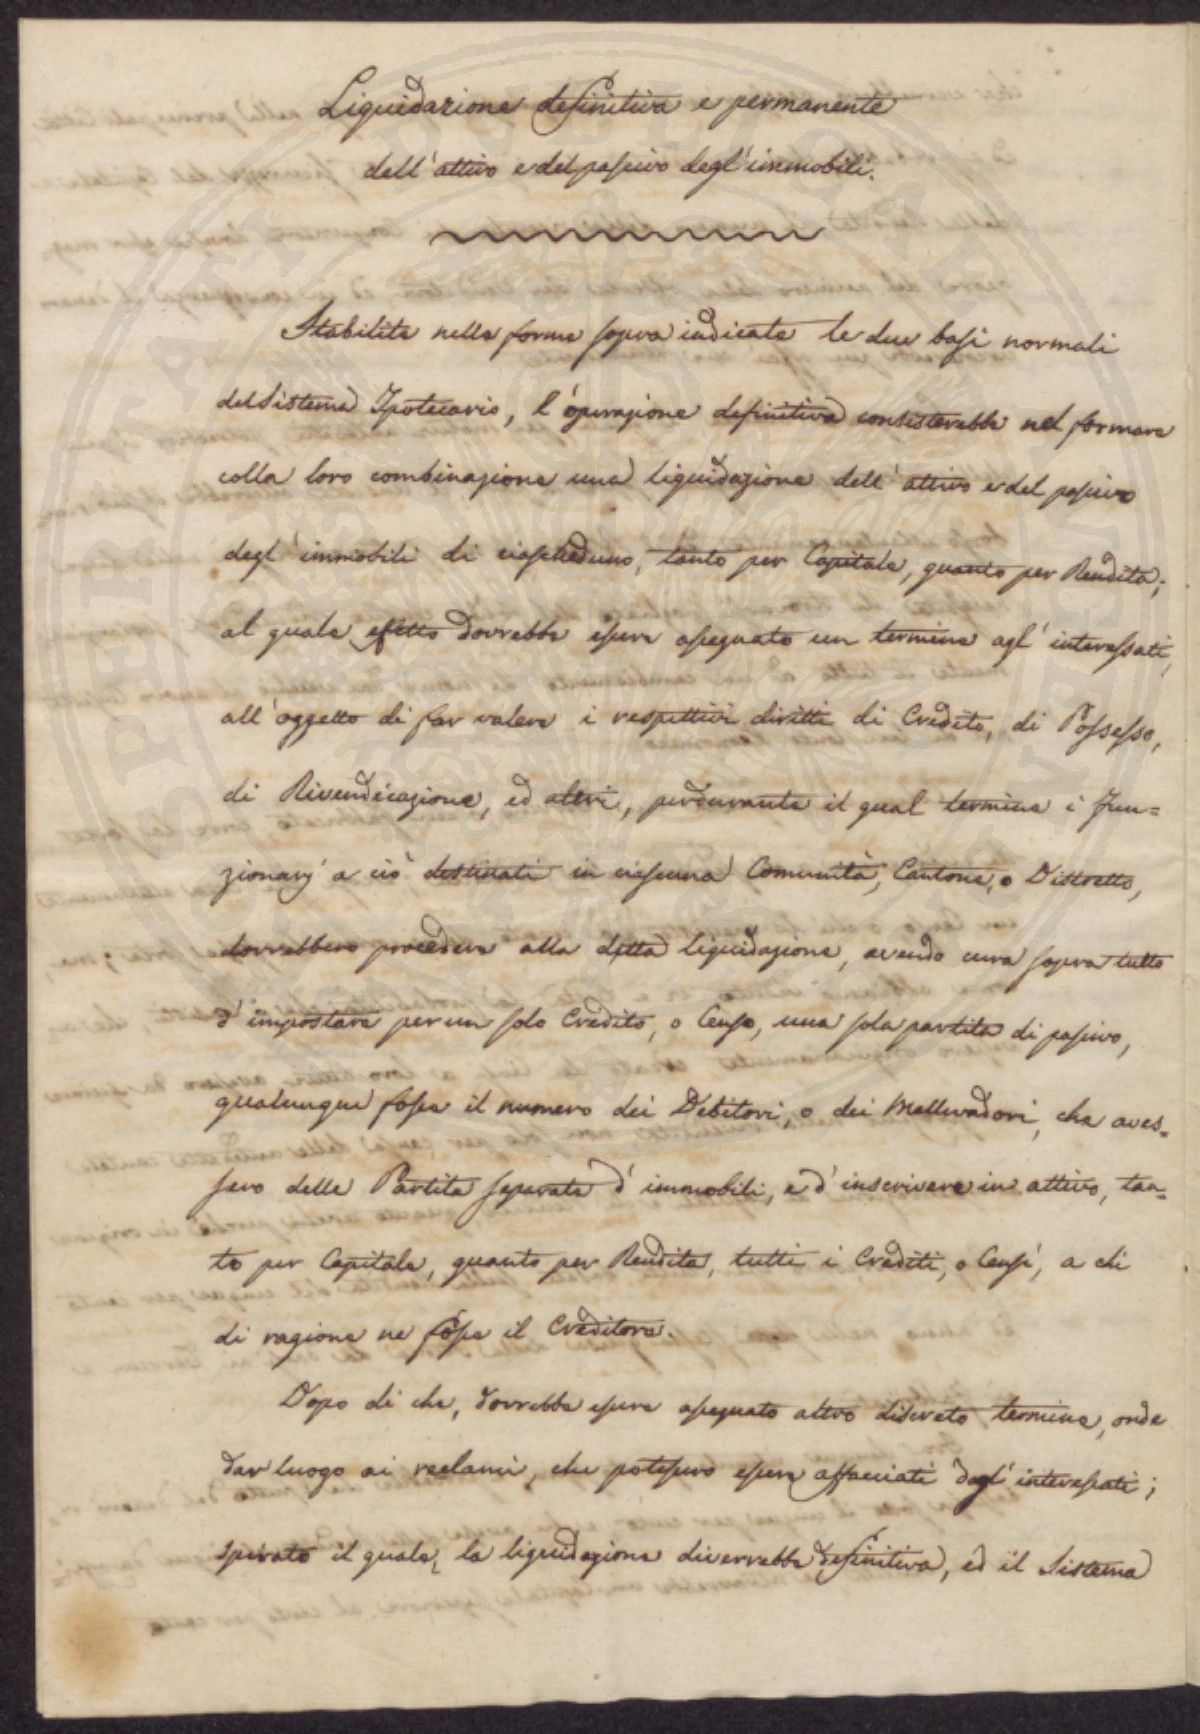 Liquidazione definitiva e permanente
dell'attivo e del passivo degl'immobili.
Stabilite nelle forme sopra indicate le due basi normali
del Sistema Ipotecario, l'operazione definitiva consisterebbe nel formare
colla loro combinazione una liquidazione dell'attivo e del passivo
degl'immobili di ciascheduno, tanto per Capitale, quanto per Rendita;
al quale effetto dovrebbe essere assegnato un termine agl'interessati,
all'oggetto di far valere i respettivi diritti di Credito, di Possesso,
di Rivendicazione, ed altri, perdurante il qual termine i Fun=
zionarj a ciò destinati in ciascuna Comunità, Cantone, o Distretto,
dovrebbero procedere alla detta liquidazione, avendo cura sopra tutto
d'impostare per un solo Credito, o Censo, una sola partita di passivo,
qualunque fosse il numero dei Debitori, o dei Mallevadori, che aves=
sero delle Partite separate d'immobili, e d'inscrivere in attivo, tan=
to per Capitale, quanto per Rendita, tutti i Crediti, o Censi, a chi
di ragione ne fosse il Creditore.
Dopo di che, dovrebbe essere assegnato altro discreto termine, onde
dar luogo ai reclami, che potessero essere affacciati dagl'interessati;
spirato il quale, la liquidazione diverrebbe definitiva, ed il Sistema